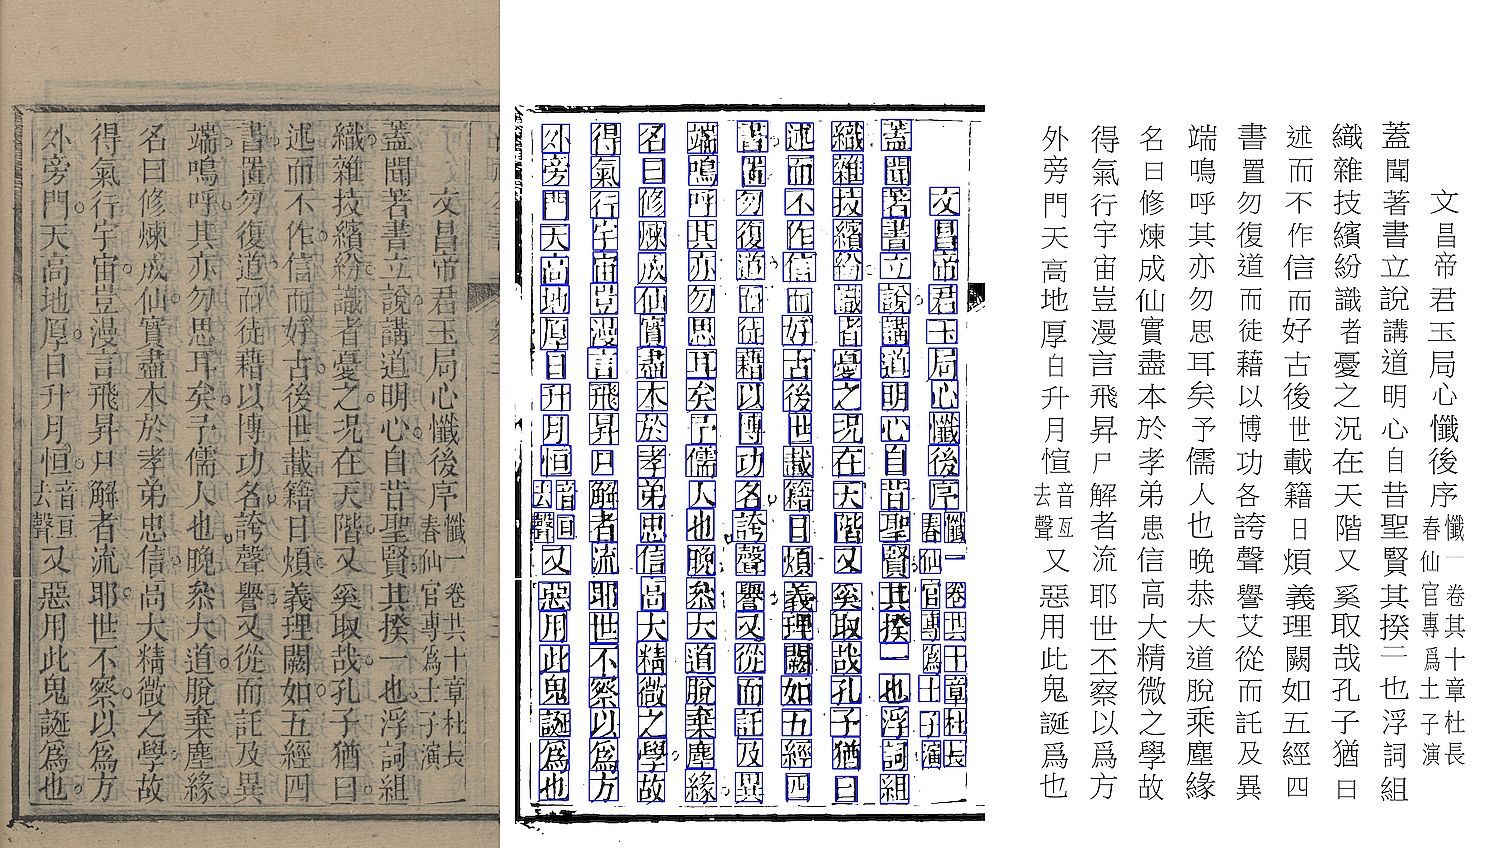 文昌帝君玉局心懺後序懺一卷共十章杜長春仙官專爲士子演
蓋聞著書立說講道明心自昔聖賢其揆一也浮詞組
織雜技繽紛識者憂之況在天階又奚取哉孔子猶曰
述而不作信而好古後世載籍日煩義理闕如五經四
書置勿復道而徒藉以博功名誇聲譽又從而託及異
端鳴呼其亦勿思耳矣予儒人也晚叅大道脫棄塵緣
名曰修煉成仙實盡本於孝弟忠信高大精微之學故
得氣行宇宙豈漫言飛昇尸解者流耶世不察以爲方
外旁門天高地厚日升月恒音亘去聲又惡用此鬼誕爲也
文昌帝君玉局心懺後序懺一卷共十章杜長春仙官專爲士子演
蓋聞著書立說講道明心自昔聖賢其揆一也浮詞組
織雜技繽紛識者憂之況在天階又奚取哉孔子猶曰
述而不作信而好古後世載籍日煩義理闕如五經四
書置勿復道而徒藉以博功名誇聲譽又從而託及異
端鳴呼其亦勿思耳矣予儒人也晚叅大道脫棄塵緣
名曰修煉成仙實盡本於孝弟忠信高大精微之學故
得氣行宇宙豈漫言飛昇尸解者流耶世不察以爲方
外旁門天高地厚日升月恒音亘去聲又惡用此鬼誕爲也
文昌帝君玉局心懺後序懺一卷其十章杜長春仙官專爲土子演
蓋聞著書立說講道明心自昔聖賢其揆二也浮詞組
織雜技繽紛識者憂之況在天階又奚取哉孔子猶曰
述而不作信而好古後世載籍日煩義理闕如五經四
書置勿復道而徒藉以博功各誇聲譽艾從而託及異
端鳴呼其亦勿思耳矣予儒人也晚恭大道脫乘塵緣
名曰修煉成仙實盡本於孝弟患信高大精微之學故
得氣行宇宙豈漫言飛昇尸解者流耶世丕察以爲方
外旁門天高地厚白升月愃音亙去聲又惡用此鬼誕爲也